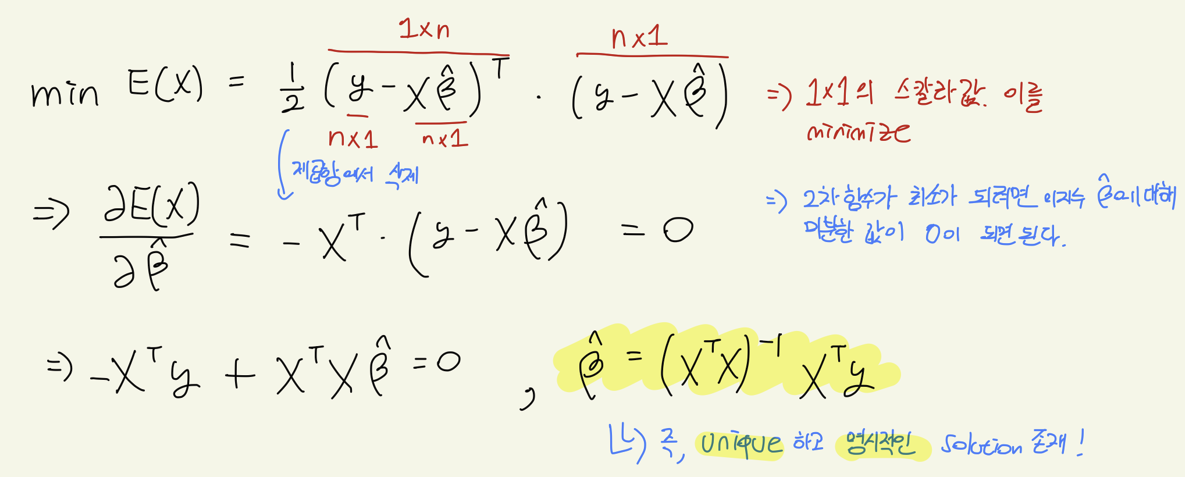 1×n
n×1
min E(X) = 1/2 (y - Xβ̂)ᵀ · (y - Xβ̂) ⇒ 1×1의 스칼라값. 이를
minimize
n×1 n×1
제곱항에서 삭제
⇒ ∂E(X)/∂β̂ = -Xᵀ · (y - Xβ̂) = 0
⇒ 2차함수가 최소가 되려면 미지수 β̂에 대해
미분한 값이 0이 되면 된다.
⇒ -Xᵀy + XᵀXβ̂ = 0 , β̂ = (XᵀX)⁻¹ Xᵀy
↳ 즉, unique 하고 명시적인 solution 존재!